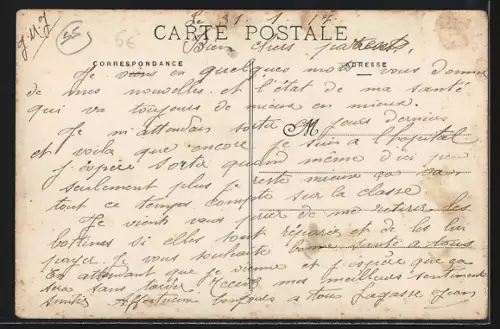 Le 31. 1. 17.
J.M.J
6€
CARTE POSTALE
Bien chers parents,
CORRESPONDANCE
ADRESSE
Je viens en quelques mots vous donner
de mes nouvelles. et l'état de ma santé
qui va toujours de mieux en mieux.
Je m'attendais sortir jours derniers
M
et voila que encore je suis a l'hopital
j'espère sortir quand même d'ici peu
seulement plus je reste mieux ça va
tout ce temps compte sur la classe
Je viens vous prier de me retirer les
bottines si elles sont réparées et de les lui
payer. Je vous souhaite bonne santé a tous
En attendant que je vienne et j'espère que ça
sera sans tarder. Recevez mes meilleurs sentiments
Affectueux toujours a tous Lagasse Jean